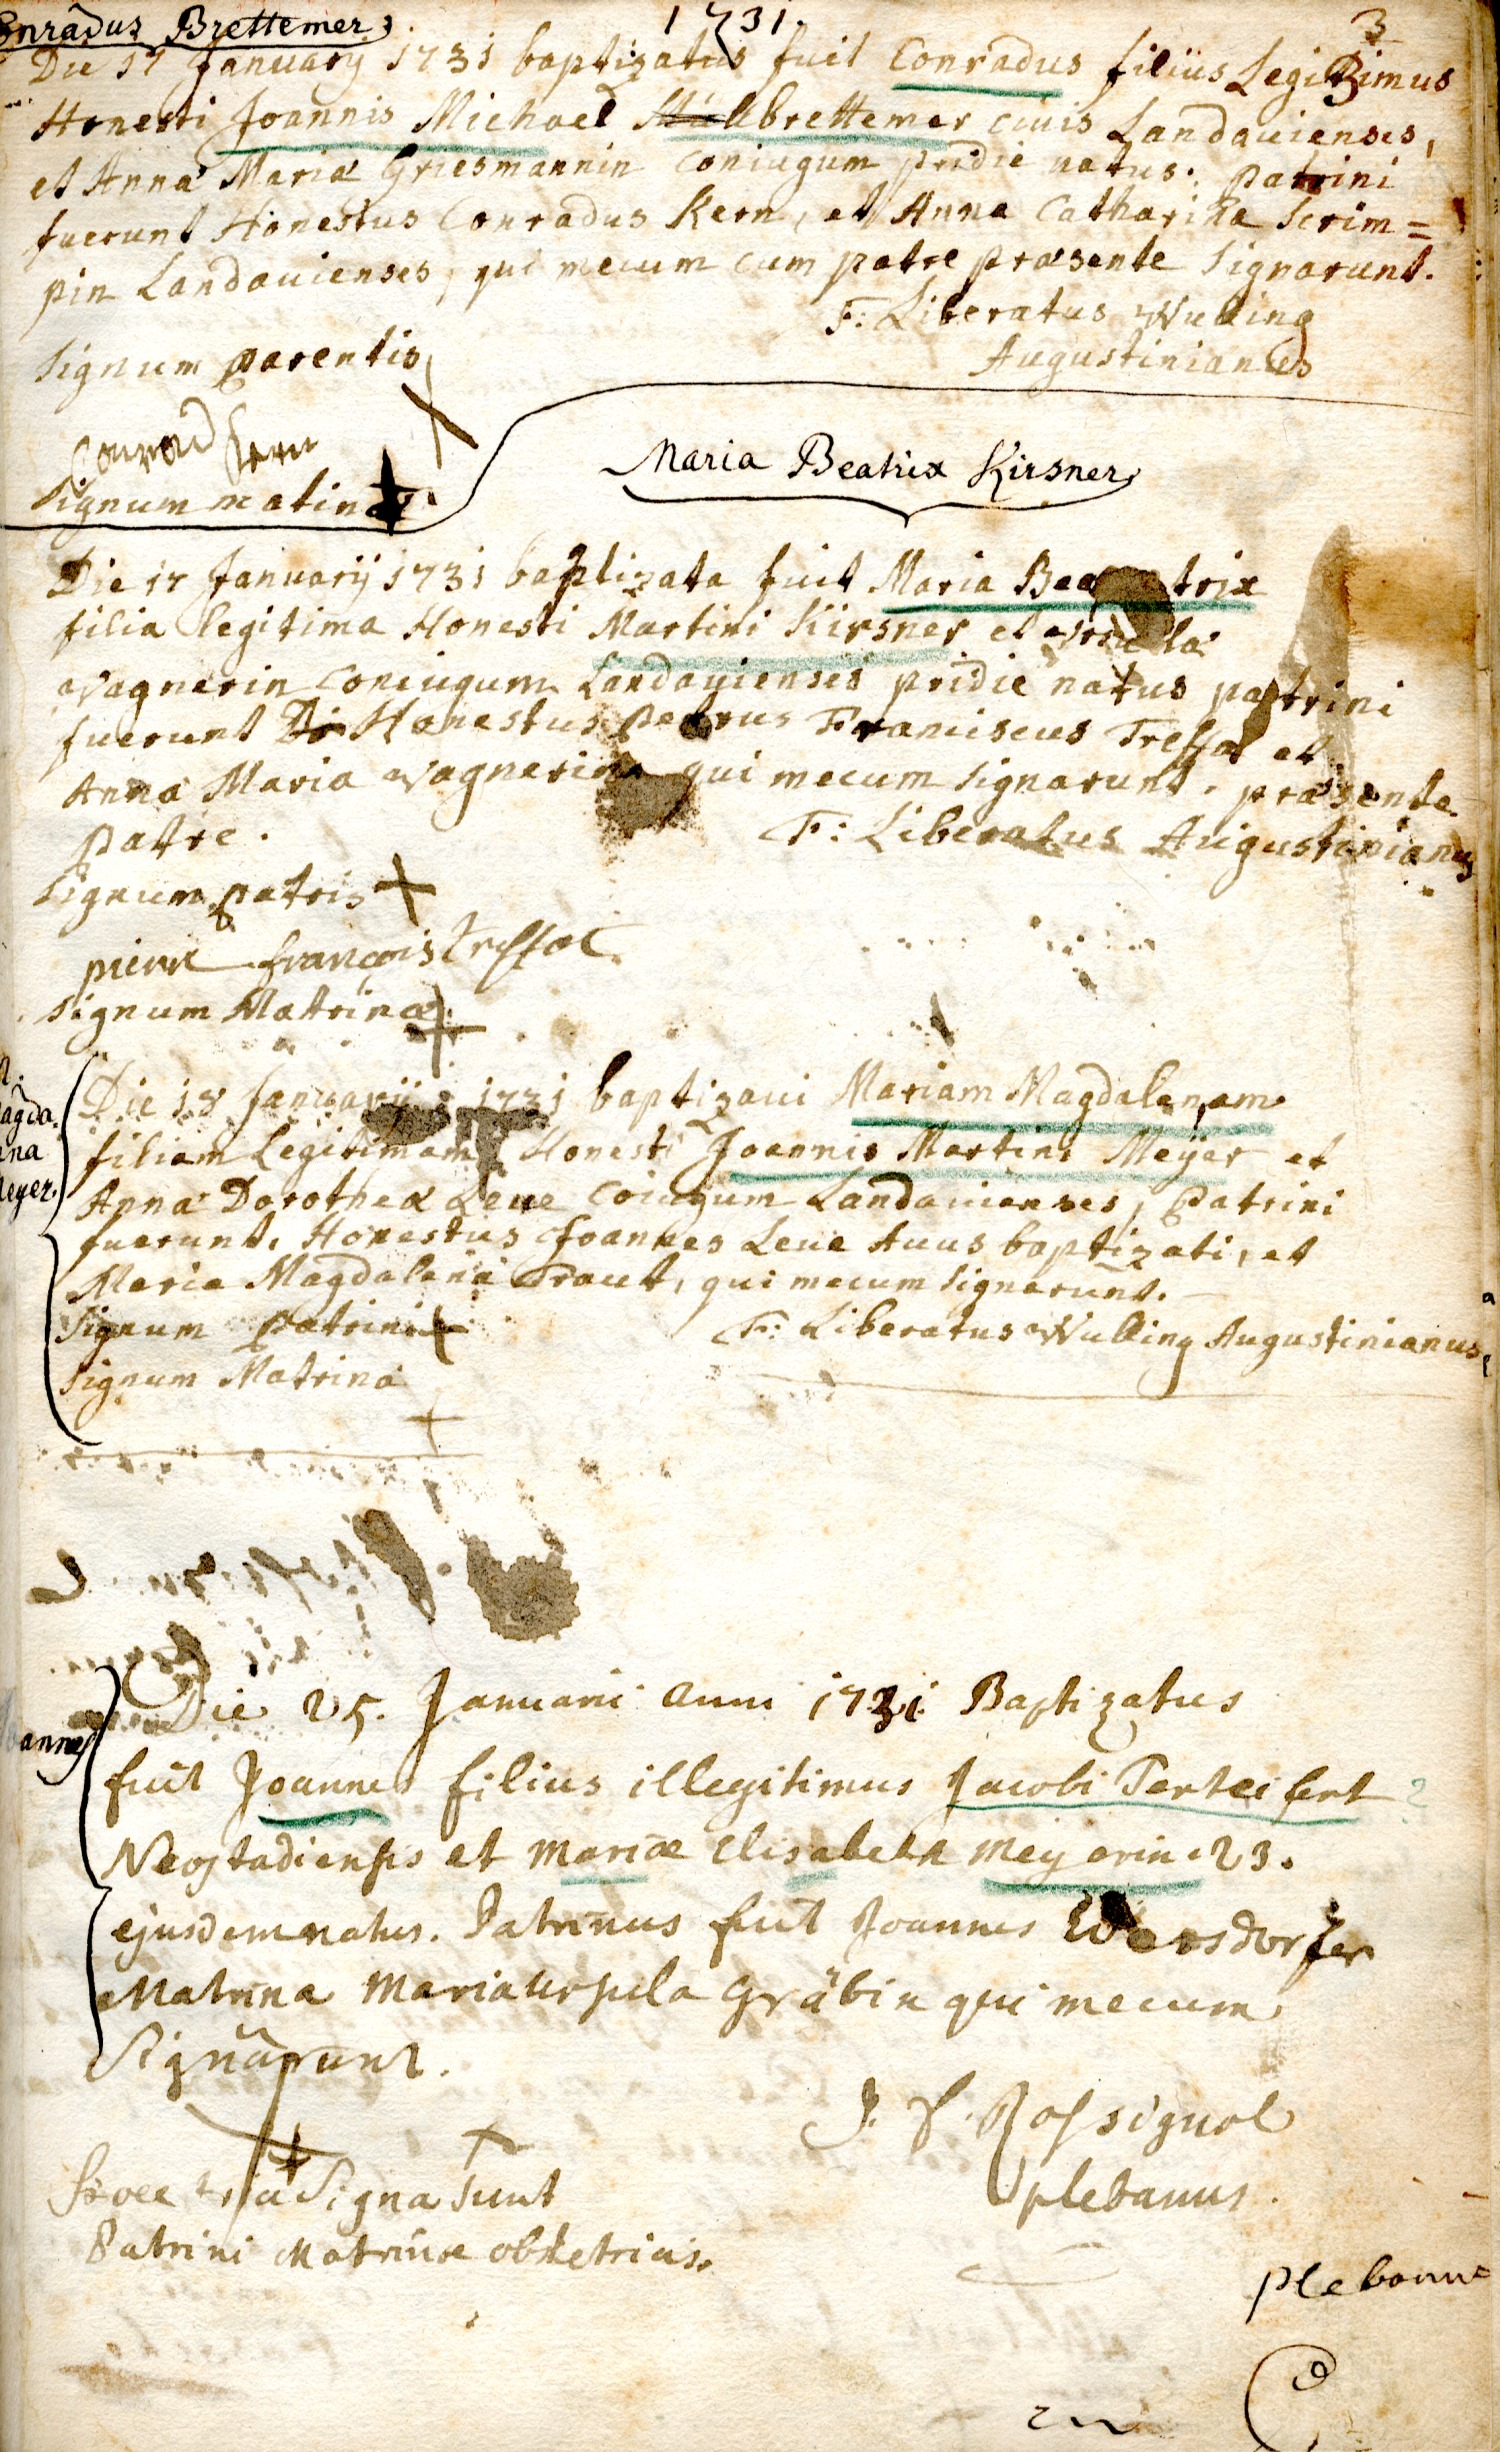 Conradus Brettemer
1731.
3
Die 17 Januarij 1731 baptizatus fuit Conradus filius Legitimus
Honesti Joannis Michael Brettemer civis Landavienses,
et Anna Maria Griesmannin coniugum pridie natus. patrini
fuerunt Honestus Conradus Kern, et Anna Catharina Scrim=
pin Landavienses, qui mecum cum patre præsente signarunt.
F: Liberatus Wulling
Augustinianus
Signum parentis
Conrad Kern
Signum matrinæ
Maria Beatrix Kirsner
Die 17 Januarij 1731 baptizata fuit Maria Beatrix
filia legitima Honesti Martini Kirsner et
Wagnerin coniugum Landavienses pridie natus patrini
fuerunt Honestus petrus Franciscus Treffat et
Anna Maria Wagnerina qui mecum signarunt. præsente
patre.
F: Liberatus Augustinianus
Signum patris
pierre françois Treffat
Signum Matrinæ
Magda.
ena
Meyer.
Die 18 Januarij 1731 baptizavi Mariam Magdalenam
filiam Legitimam Honesti Joannis Martini Meÿer et
Anna Dorothea Leve coiugum Landavienses, patrini
fuerunt, Honestus Joannes Leve Avus baptizati, et
Maria Magdalena Traut, qui mecum signarunt.
Signum patrini
F: Liberatus Wulling Augustinianus
Signum Matrina
Joannes
Die 25. Januarii anni 1731 Baptizatus
fuit Joannes filius illegitimus Jacobi
Neostadiensis et Mariæ Elisabeth Meyerin 23.
ejusdem natus. Patrinus fuit Joannes
Matrina Maria Ursula Gräbin qui mecum
Signarunt.
J. P. Rossignol
plebanus.
Hæc tria Signa sunt
Patrini Matrinæ obstetricis.
plebanus